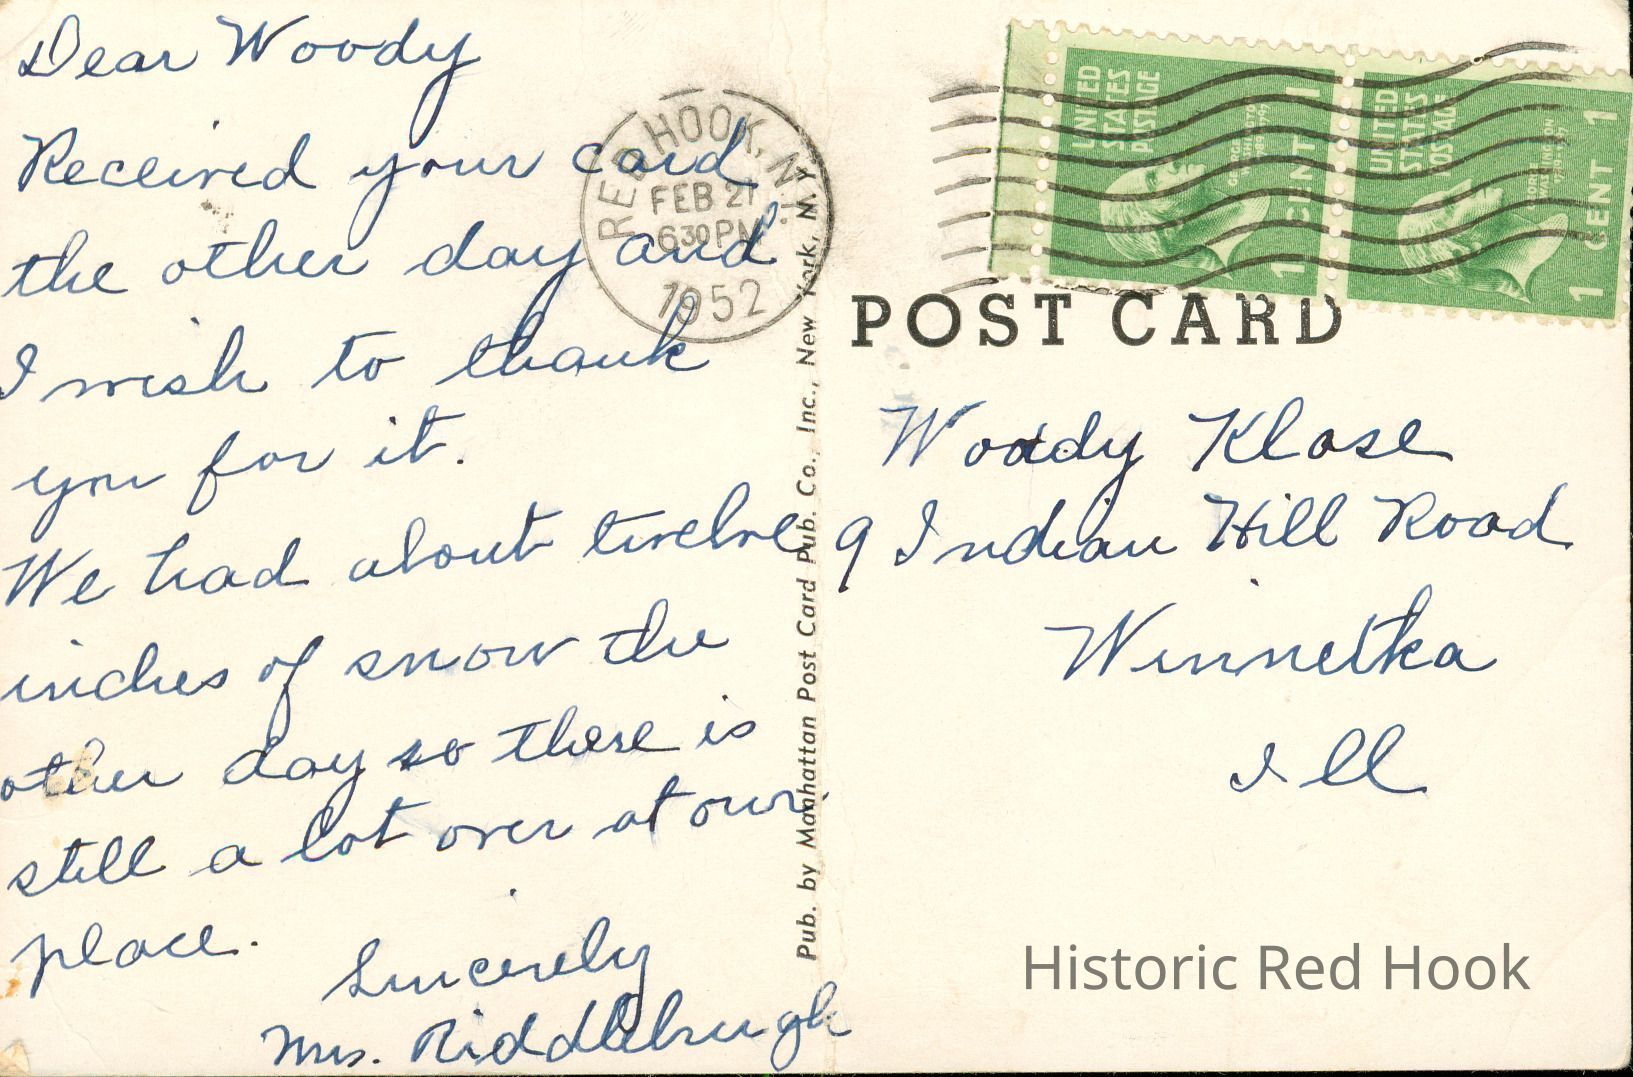 Dear Woody
Received your card
the other day and
I wish to thank
you for it.
We had about twelve
inches of snow the
other day so there is
still a lot over at our
place.
Sincerely
Mrs. Riddlebrugh
RED HOOK, N.Y.
FEB 21
630PM
1952
Pub. by Manhattan Post Card Pub. Co., Inc., New York, N.Y.
UNITED
STATES
POSTAGE
GEORGE
WASHINGTON
1789-1797
1 CENT 1
UNITED
STATES
POSTAGE
GEORGE
WASHINGTON
1789-1797
1 CENT 1
POST CARD
Woody Klose
9 Indian Hill Road
Winnetka
Ill
Historic Red Hook